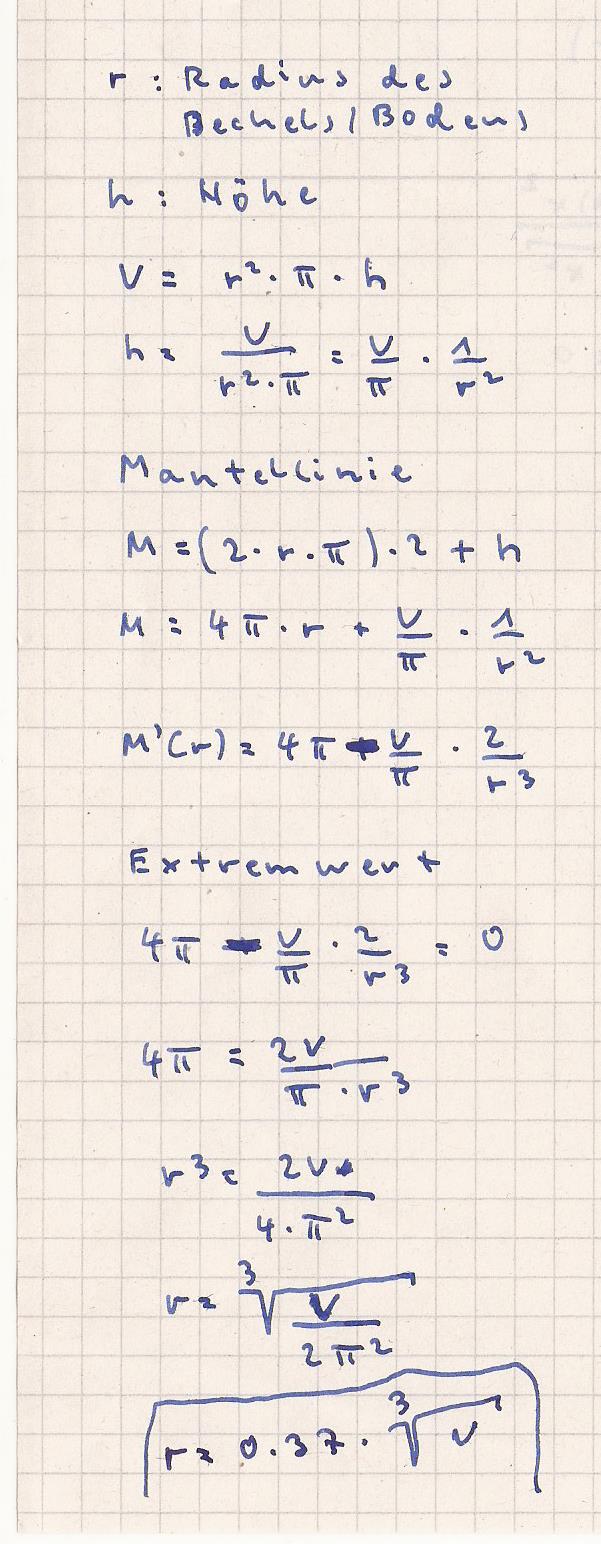 r : Radius des
Bechers / Bodens
h : Höhe
V = r² · π · h
h = V / (r² · π) = V/π · 1/r²
Mantellinie
M = (2 · r · π) · 2 + h
M = 4π · r + V/π · 1/r²
M'(r) = 4π - V/π · 2/r³
Extremwert
4π - V/π · 2/r³ = 0
4π = 2V / (π · r³)
r³ = 2V / (4 · π²)
r = ³√(V / 2π²)
r = 0.37 · ³√V